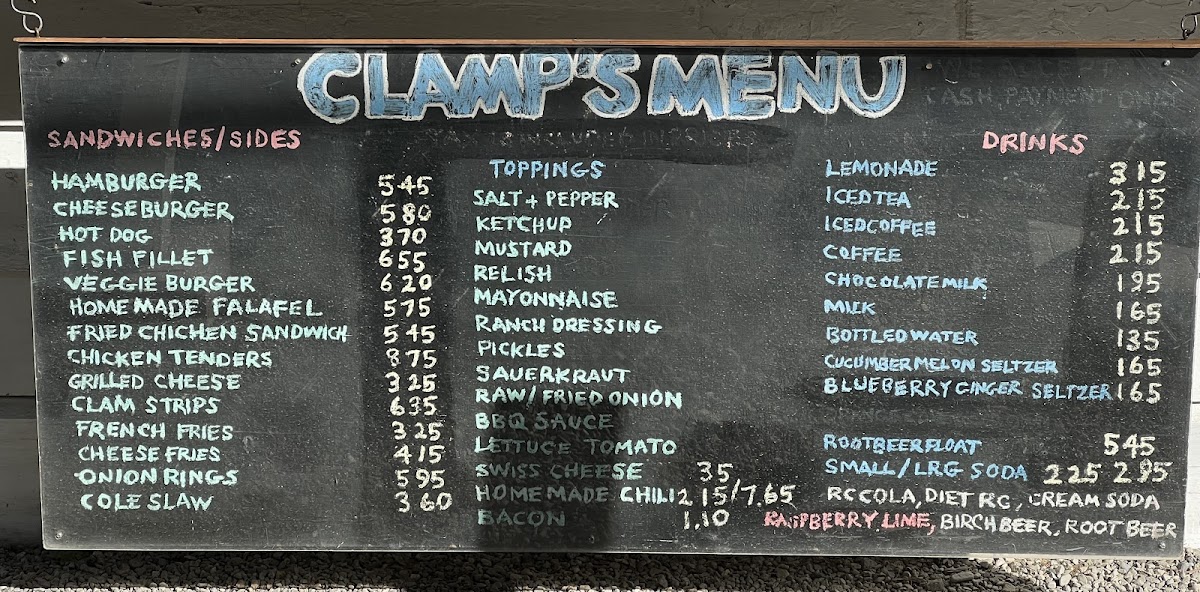 CLAMP'S MENU
CASH PAYMENT ONLY
SANDWICHES/SIDES
HAMBURGER 545
CHEESEBURGER 580
HOT DOG 370
FISH FILLET 655
VEGGIE BURGER 620
HOMEMADE FALAFEL 575
FRIED CHICHEN SANDWICH 545
CHICKEN TENDERS 875
GRILLED CHEESE 325
CLAM STRIPS 635
FRENCH FRIES 325
CHEESE FRIES 415
ONION RINGS 595
COLE SLAW 360
TOPPINGS
SALT + PEPPER
KETCHUP
MUSTARD
RELISH
MAYONNAISE
RANCH DRESSING
PICKLES
SAUERKRAUT
RAW/FRIED ONION
BBQ SAUCE
LETTUCE TOMATO
SWISS CHEESE 35
HOMEMADE CHILI 2.15/7.65
BACON 1.10
DRINKS
LEMONADE 315
ICED TEA 215
ICED COFFEE 215
COFFEE 215
CHOCOLATE MILK 195
MILK 165
BOTTLED WATER 135
CUCUMBER MELON SELTZER 165
BLUEBERRY GINGER SELTZER 165
ROOTBEER FLOAT 545
SMALL/LRG SODA 225 295
RC COLA, DIET RC, CREAM SODA
RASPBERRY LIME, BIRCH BEER, ROOT BEER